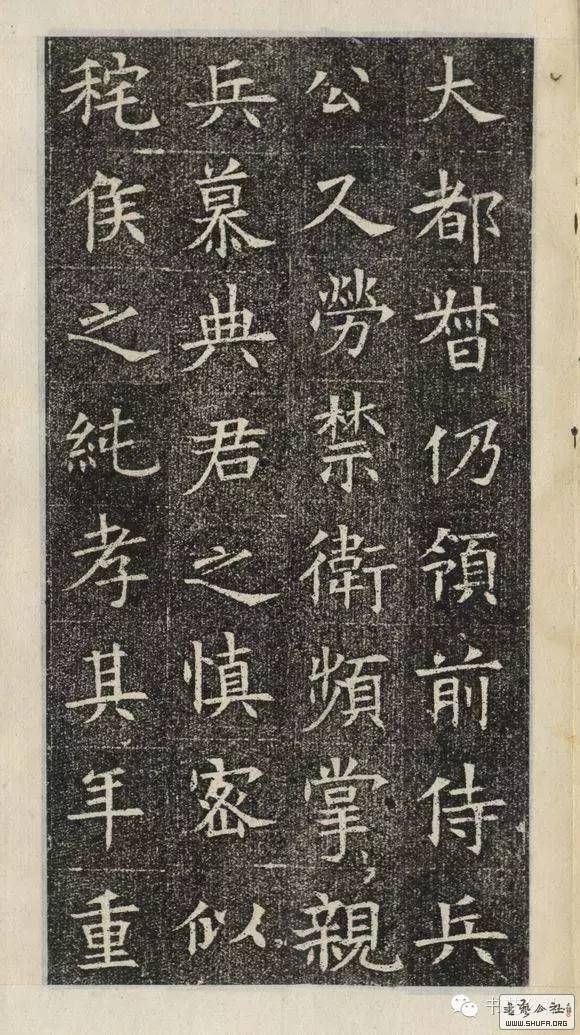 大都督仍領前侍兵
公久勞禁衛頻掌親
兵慕典君之慎密似
秺侯之純孝其年重
书
WWW.SHUFA.ORG